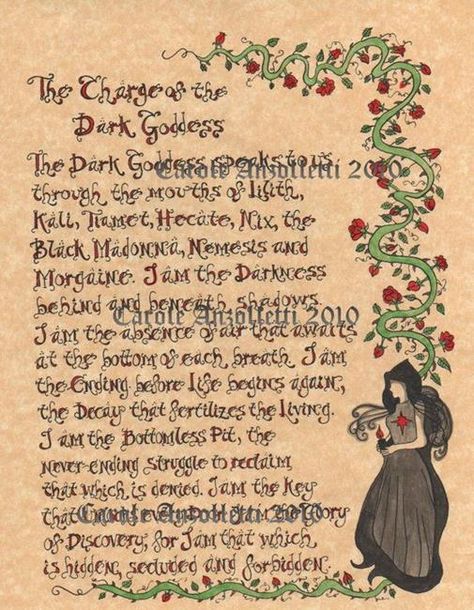 The Charge of the
Dark Goddess
The Dark Goddess speaks to us
Carole Anzolletti 2010
through the mouths of Lilith,
Kali, Tiamet, Hecate, Nix, the
Black Madonna, Nemesis and
Morgaine. I am the Darkness
behind and beneath shadows.
Carole Anzolletti 2010
I am the absence of air that awaits
at the bottom of each breath. I am
the Ending before Life begins again,
the Decay that fertilizes the Living.
I am the Bottomless Pit, the
never-ending struggle to reclaim
that which is denied. I am the Key
that I am the Glory
Carole Anzolletti 2010
of Discovery, for I am that which
is hidden, secluded and forbidden.